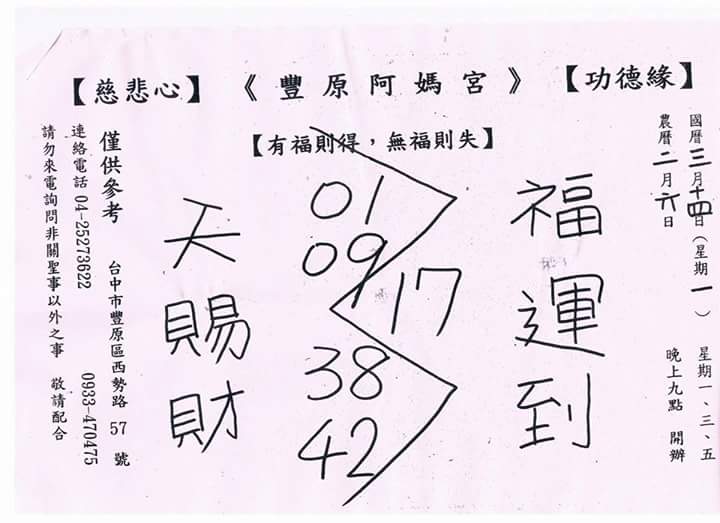 【慈悲心】 《豐原阿媽宮》 【功德緣】
【有福則得，無福則失】
國曆三月十四日(星期一)
農曆二月六日
星期一、三、五
晚上九點 開辦
福運到
01
09
17
38
42
天賜財
台中市豐原區西勢路 57 號
僅供參考
0933-470475
連絡電話 04-25273622
請勿來電詢問非關聖事以外之事 敬請配合